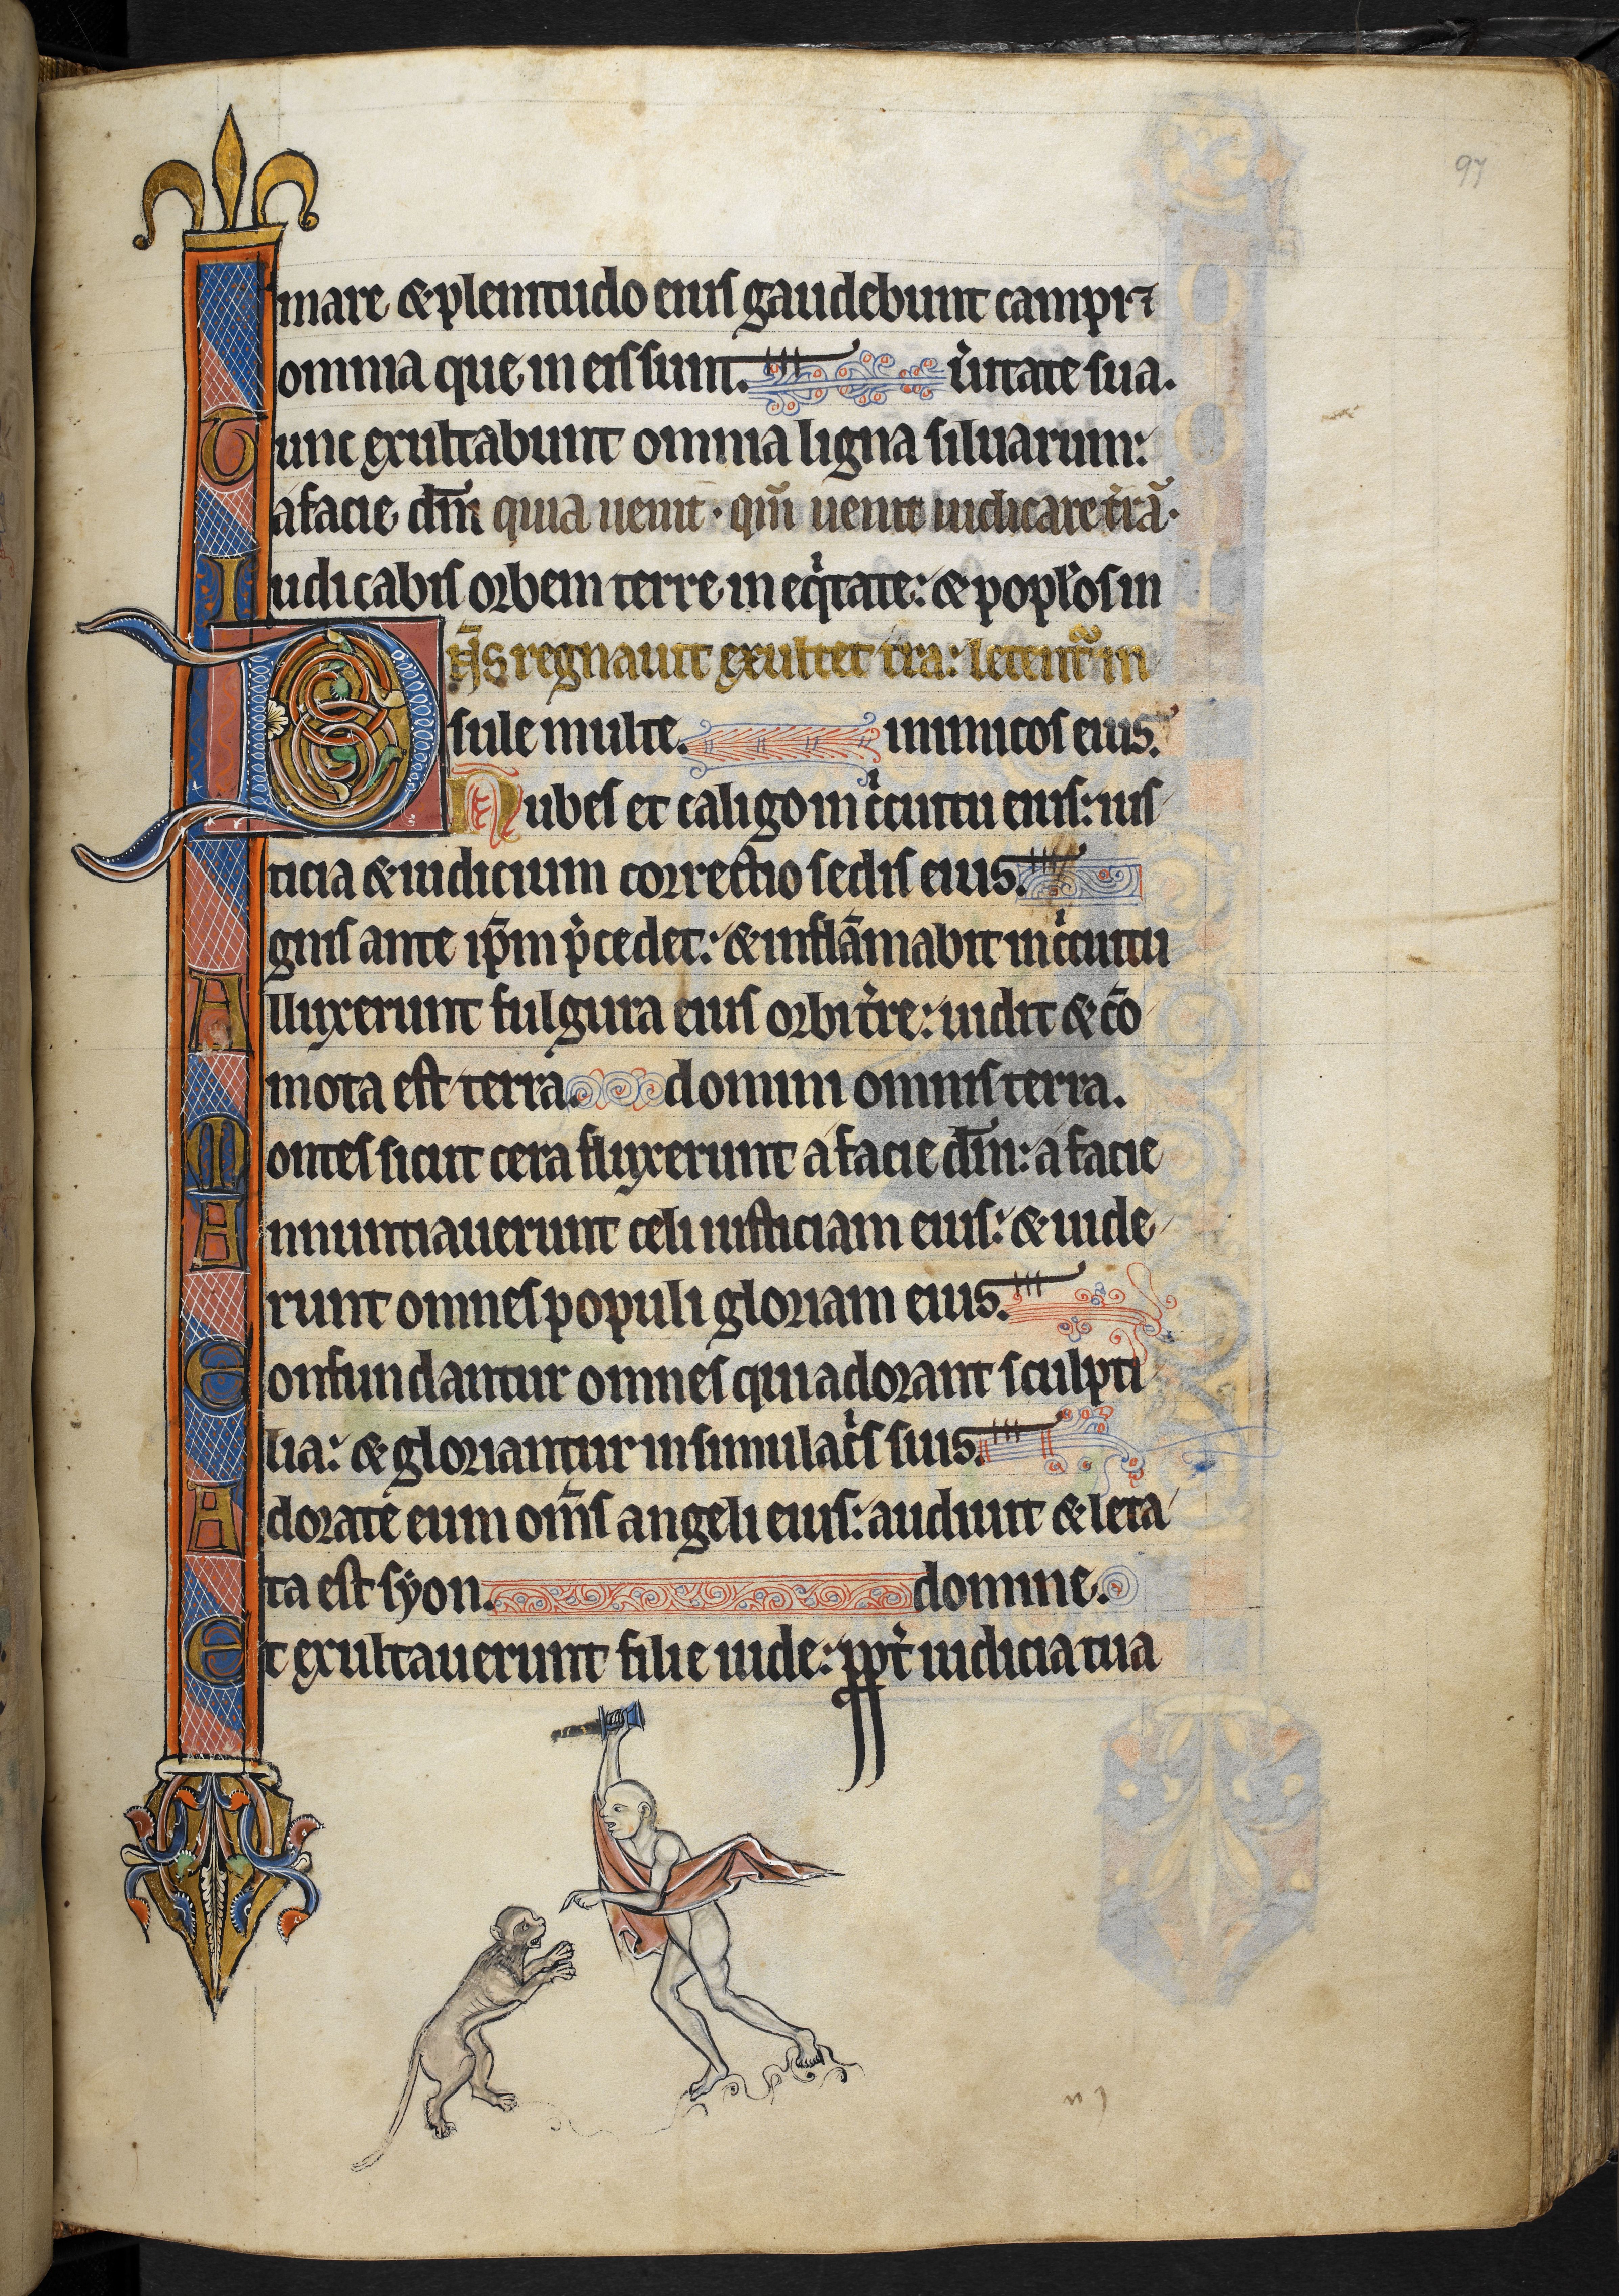 97
mare & plenitudo eius gaudebunt campi ⁊
omnia que in eis sunt. u̾itate sua.
Tunc exultabunt omnia ligna siluarum:
a facie dn̄i quia uenit· qm̄ uenit iudicare t̾rā·
Iudicabis orbem terre in eq̾tate: & popl̾os in
Dn̄s regnauit exultet tr̄a: letent̾ in
sule multe. inimicos eius.
Nubes et caligo in c̾cuitu eius: ius
ticia & iudicium correctio sedis eius.
gnis ante ip̄m p̾cedet: & inflāmabit in c̾cuitu
Alluxerunt fulgura eius orbi t̾re: uidit & cō
mota est terra. domini omnis terra.
Montes sicut cera fluxerunt a facie dn̄i: a facie
Annuntiauerunt celi iusticiam eius: & uide
runt omnes populi gloriam eius.
Confundantur omnes qui adorant sculpti
lia: & gloriantur in simulac̾s suis.
Adorate eum om̄s angeli eius: audiuit & leta
ta est syon. domine.
Et exultauerunt filie iude: ꝓpt̾ iudicia tua